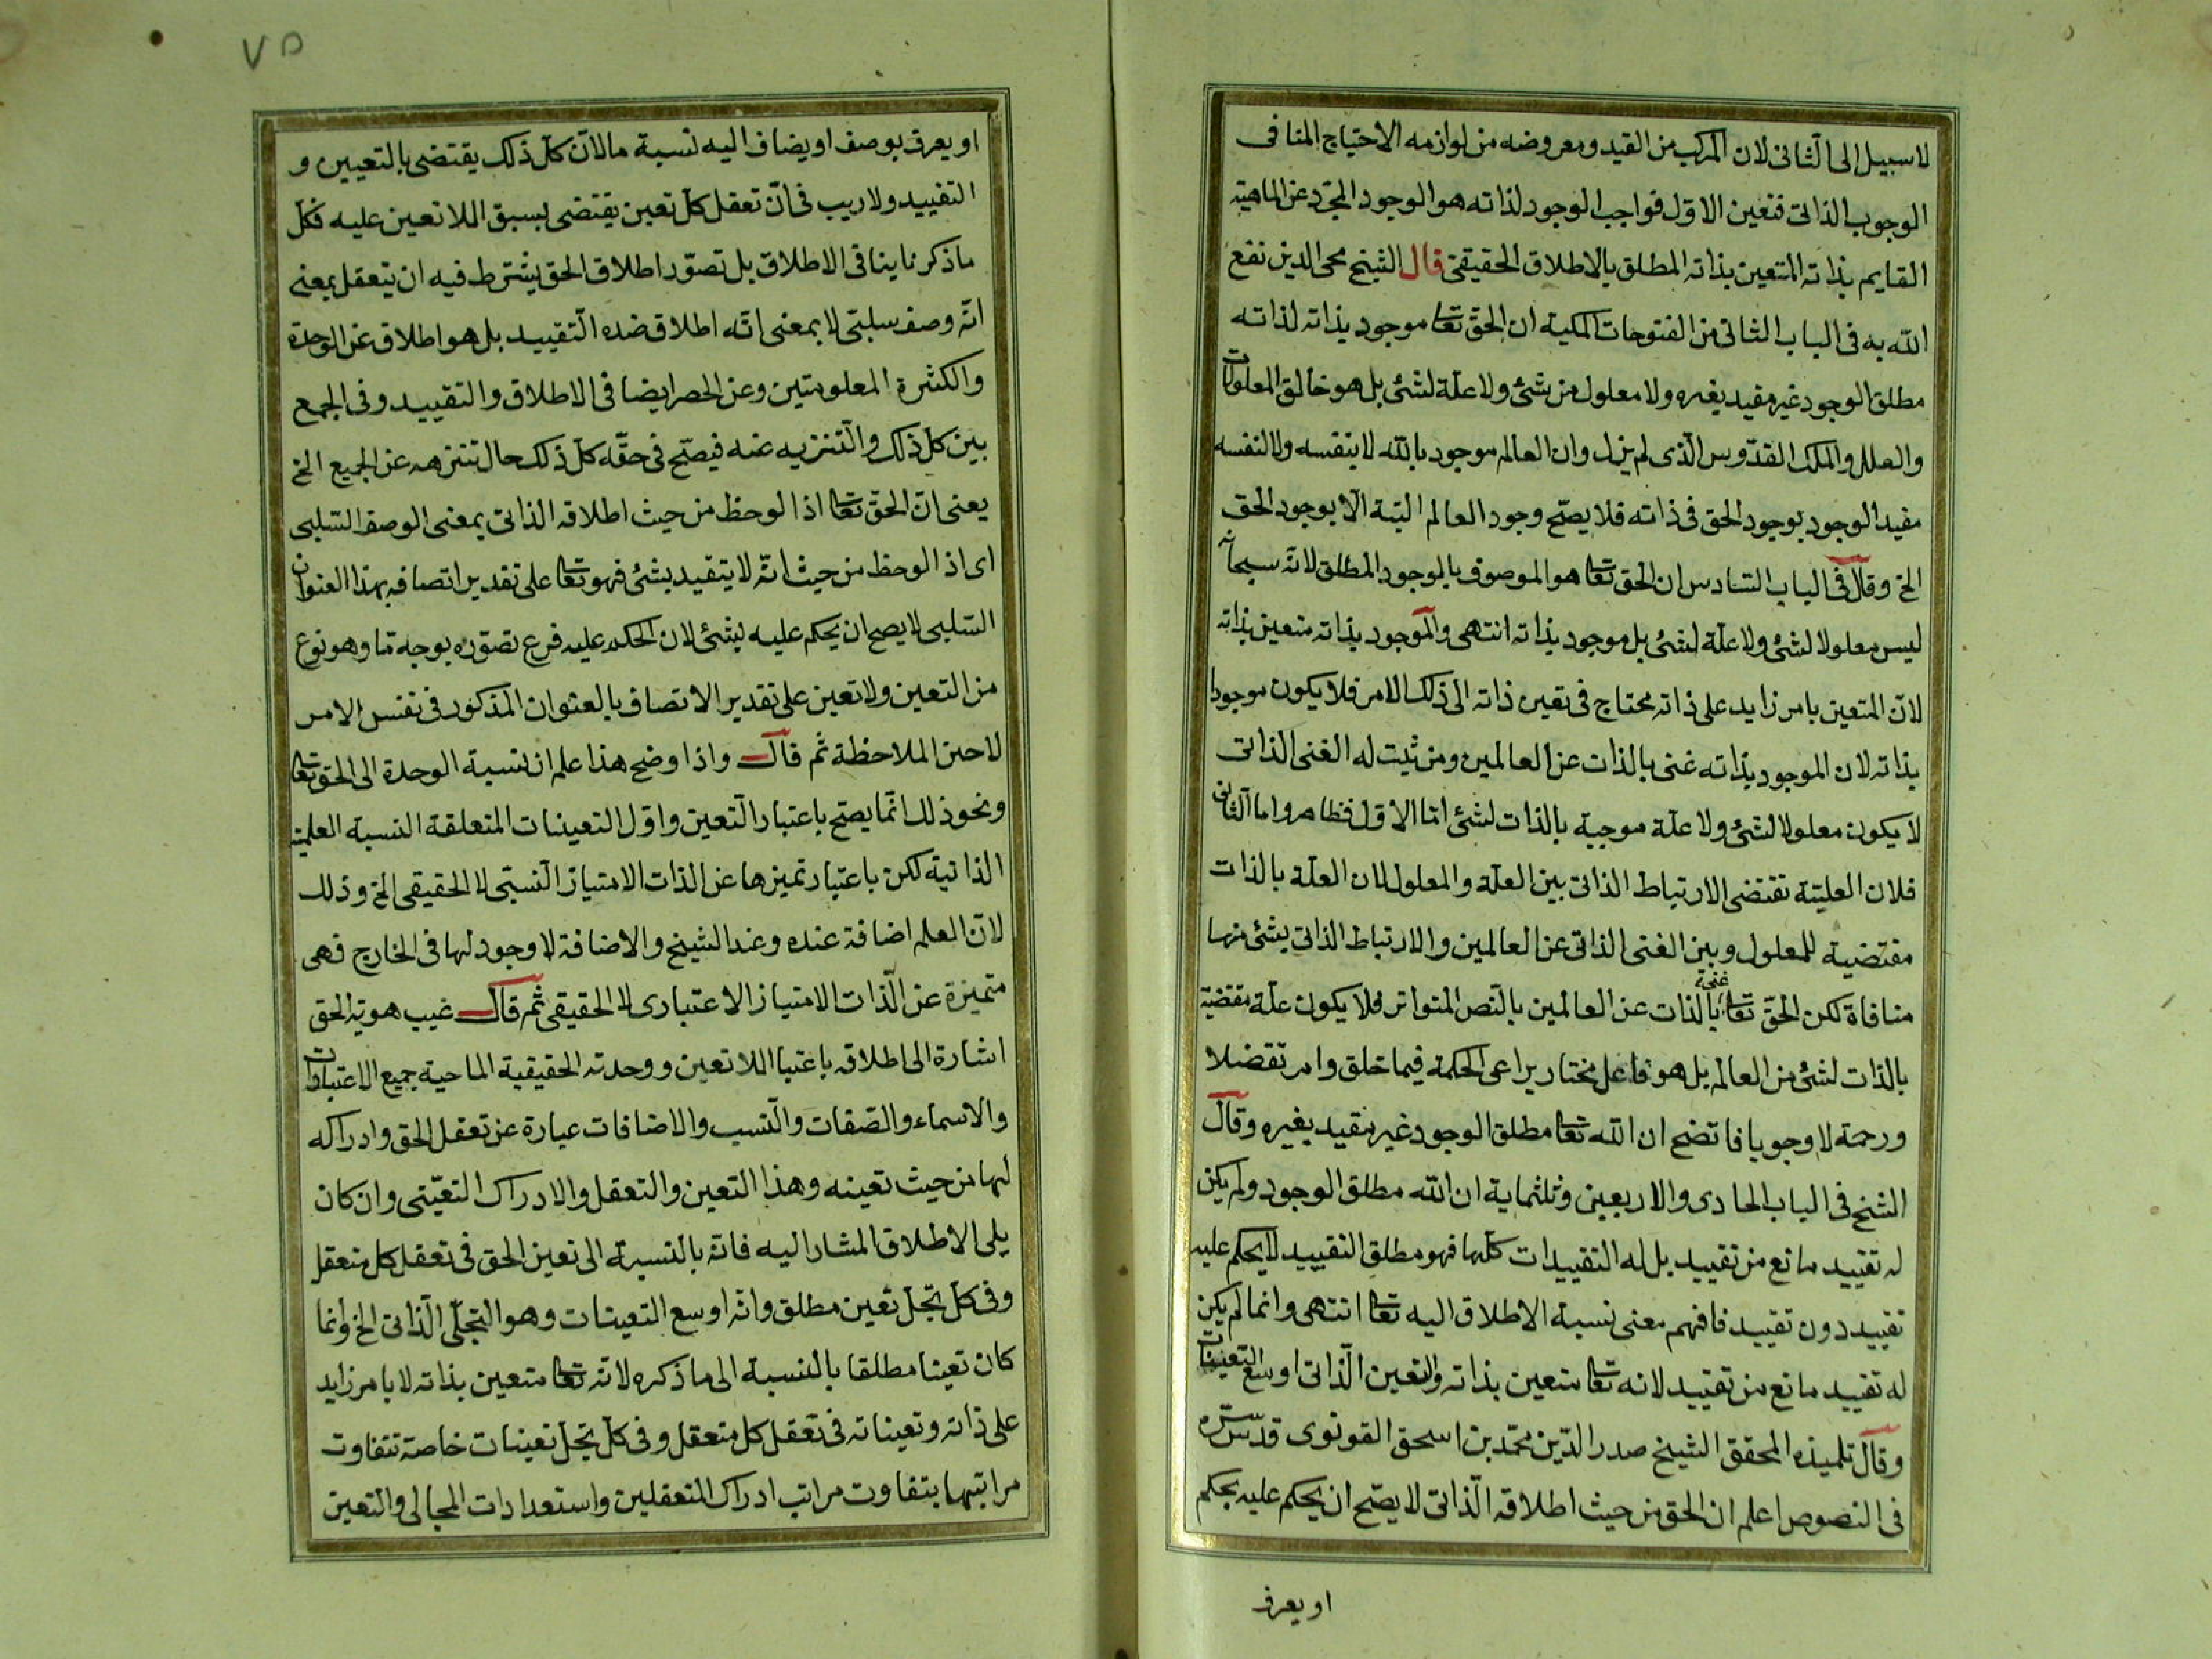 لا سبيل الى الثانى لان المركب من القيد ومعروضه من لوازمه الاحتياج المنافى
الوجوب الذاتى فتعين الاول فواجب الوجود لذاته هو الوجود المجرد عن الماهية
القايم بذاته المتعين بذاته المطلق بالاطلاق الحقيقى قال الشيخ محى الدين نفع
الله به فى الباب الثانى من الفتوحات المكية ان الحق تعا موجود بذاته لذاته
مطلق الوجود غير مقيد بغيره ولا معلول من شئ ولا علة لشئ بل هو خالق المعلولات
والعلل والملك القدوس الذى لم يزل وان العالم موجود بالله لا بنفسه ولا لنفسه
مقيد الوجود بوجود الحق فى ذاته فلا يصح وجود العالم البتة الا بوجود الحق
الخ وقال فى الباب السادس ان الحق تعا هو الموصوف بالوجود المطلق لانه سبحانه
ليس معلولا لشئ ولا علة لشئ بل موجود بذاته انتهى والموجود بذاته متعين بذاته
لان المتعين بامر زايد على ذاته محتاج فى تعين ذاته الى ذلك الامر فلا يكون موجودا
بذاته لان الموجود بذاته غنى بالذات عن العالمين ومن ثبت له الغنى الذاتى
لا يكون معلولا لشئ ولا علة موجبة بالذات لشئ اما الاول فظاهر واما الثانى
فلان العلية تقتضى الارتباط الذاتى بين العلة والمعلول لان العلة بالذات
مقتضية للمعلول وبين الغنى الذاتى عن العالمين والارتباط الذاتى بشئ منها
منافاة لكن الحق تعا غنى بالذات عن العالمين بالنص المتواتر فلا يكون علة مقتضية
بالذات لشئ من العالم بل هو فاعل مختار يراعى الحكمة فيما خلق وامر تفضلا
ورحمة لا وجوبا فاتضح ان الله تعا مطلق الوجود غير مقيد بغيره وقال
الشيخ فى الباب الحادى والاربعين وثلثماية ان الله مطلق الوجود ولم يكن
له تقييد مانع من تقييد بل له التقييدات كلها فهو مطلق التقييد لا يحكم عليه
تقييد دون تقييد فافهم معنى نسبة الاطلاق اليه تعا انتهى وانما لم يكن
له تقييد مانع من تقييد لانه تعا متعين بذاته والتعين الذاتى اوسع التعينات
وقال تلميذه المحقق الشيخ صدر الدين محمد بن اسحق القونوى قدس سره
فى النصوص اعلم ان الحق من حيث اطلاقه الذاتى لا يصح ان يحكم عليه بحكم
او يعرف
٧٥
او يعرف بوصف او يضاف اليه نسبة ما لان كل ذلك يقتضى بالتعيين و
التقييد ولا ريب فى ان تعقل كل تعين يقتضى بسبق اللاتعين عليه فكل
ما ذكرنا ينافى الاطلاق بل تصور اطلاق الحق يشترط فيه ان يتعقل بمعنى
انه وصف سلبى لا بمعنى انه اطلاق ضده التقييد بل هو اطلاق عن الوحدة
والكثرة المعلومتين وعن الحصر ايضا فى الاطلاق والتقييد وفى الجمع
بين كل ذلك والتنزيه عنه فيصح فى حقه كل ذلك حال تنزهه عن الجميع الخ
يعنى ان الحق تعا اذا لوحظ من حيث اطلاقه الذاتى بمعنى الوصف السلبى
اى اذا لوحظ من حيث انه لا يتقيد بشئ فهو تعا على تقدير اتصافه بهذا العنوان
السلبى لا يصح ان يحكم عليه بشئ لان الحكم عليه فرع تصوره بوجه ما وهو نوع
من التعين ولا تعين على تقدير الاتصاف بالعنوان المذكور فى نفس الامر
لا حين الملاحظة ثم قال واذا وضح هذا علم ان نسبة الوحدة الى الحق تعا
ونحو ذلك انما يصح باعتبار التعين واول التعينات المتعلقة النسبة العلمية
الذاتية لكن باعتبار تميزها عن الذات الامتياز النسبى لا الحقيقى الخ وذلك
لان العلم اضافة عنده وعند الشيخ والاضافة لا وجود لها فى الخارج فهى
متميزة عن الذات الامتياز الاعتبارى لا الحقيقى ثم قال غيب هوية الحق
اشارة الى اطلاقه باعتبار اللاتعين ووحدته الحقيقية الماحية جميع الاعتبارات
والاسماء والصفات والنسب والاضافات عبارة عن تعقل الحق وادراكه
لها من حيث تعينه وهذا التعين والتعقل والادراك التعينى وان كان
يلى الاطلاق المشار اليه فانه بالنسبة الى تعين الحق فى تعقل كل متعقل
وفى كل تجل تعين مطلق وانه اوسع التعينات وهو التجلى الذاتى الخ وانما
كان تعينا مطلقا بالنسبة الى ما ذكره لانه تعا متعين بذاته لا بامر زايد
على ذاته وتعيناته فى تعقل كل متعقل وفى كل تجل تعينات خاصة تتفاوت
مراتبها بتفاوت مراتب ادراك المتعقلين واستعدادات المجالى والتعين